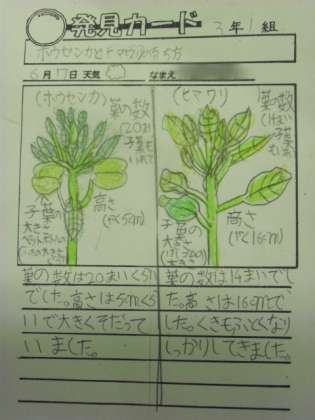 発見カード
3年1組
ホウセンカとヒマワリの育ち方
6月17日 天気 なまえ
(ホウセンカ)
葉の数
(20まい)
子葉も
いれて
高さ
(やく5cm)
子葉の
大きさ
(ヒマワリ)
葉の数
子葉も
高さ
(やく16cm)
子葉の
大きさ
葉の数は20まいくらい
でした。高さは5cmくら
いで大きくそだって
いました。
葉の数は14まいでし
た。高さは16cmで
した。くきもふとくなり
しっかりしてきました。